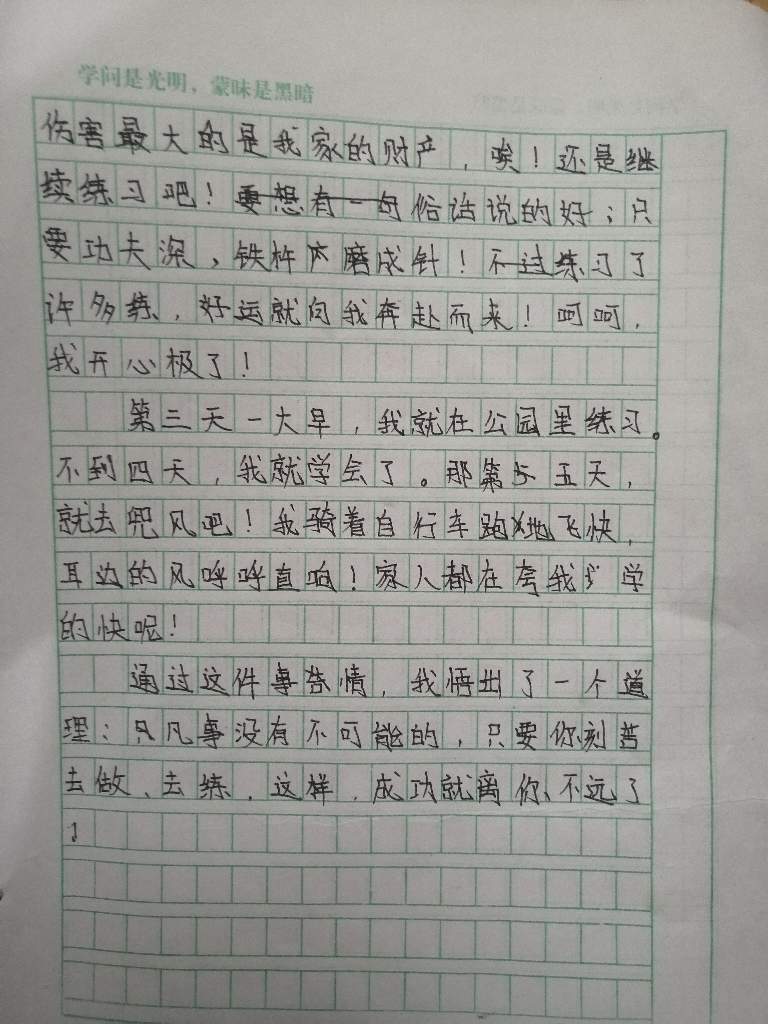 学问是光明，蒙昧是黑暗
伤害最大的是我家的财产，唉！还是继
续练习吧！要想有一句俗话说的好：只
要功夫深，铁杵磨成针！不过练习了
许多练，好运就向我奔赴而来！呵呵，
我开心极了！
第三天一大早，我就在公园里练习。
不到四天，我就学会了。那第五天，
就去兜风吧！我骑着自行车跑地飞快，
耳边的风呼呼直响！家人都在夸我学
的快呢！
通过这件事情，我悟出了一个道
理：凡事没有不可能的，只要你刻苦
去做、去练，这样，成功就离你不远了